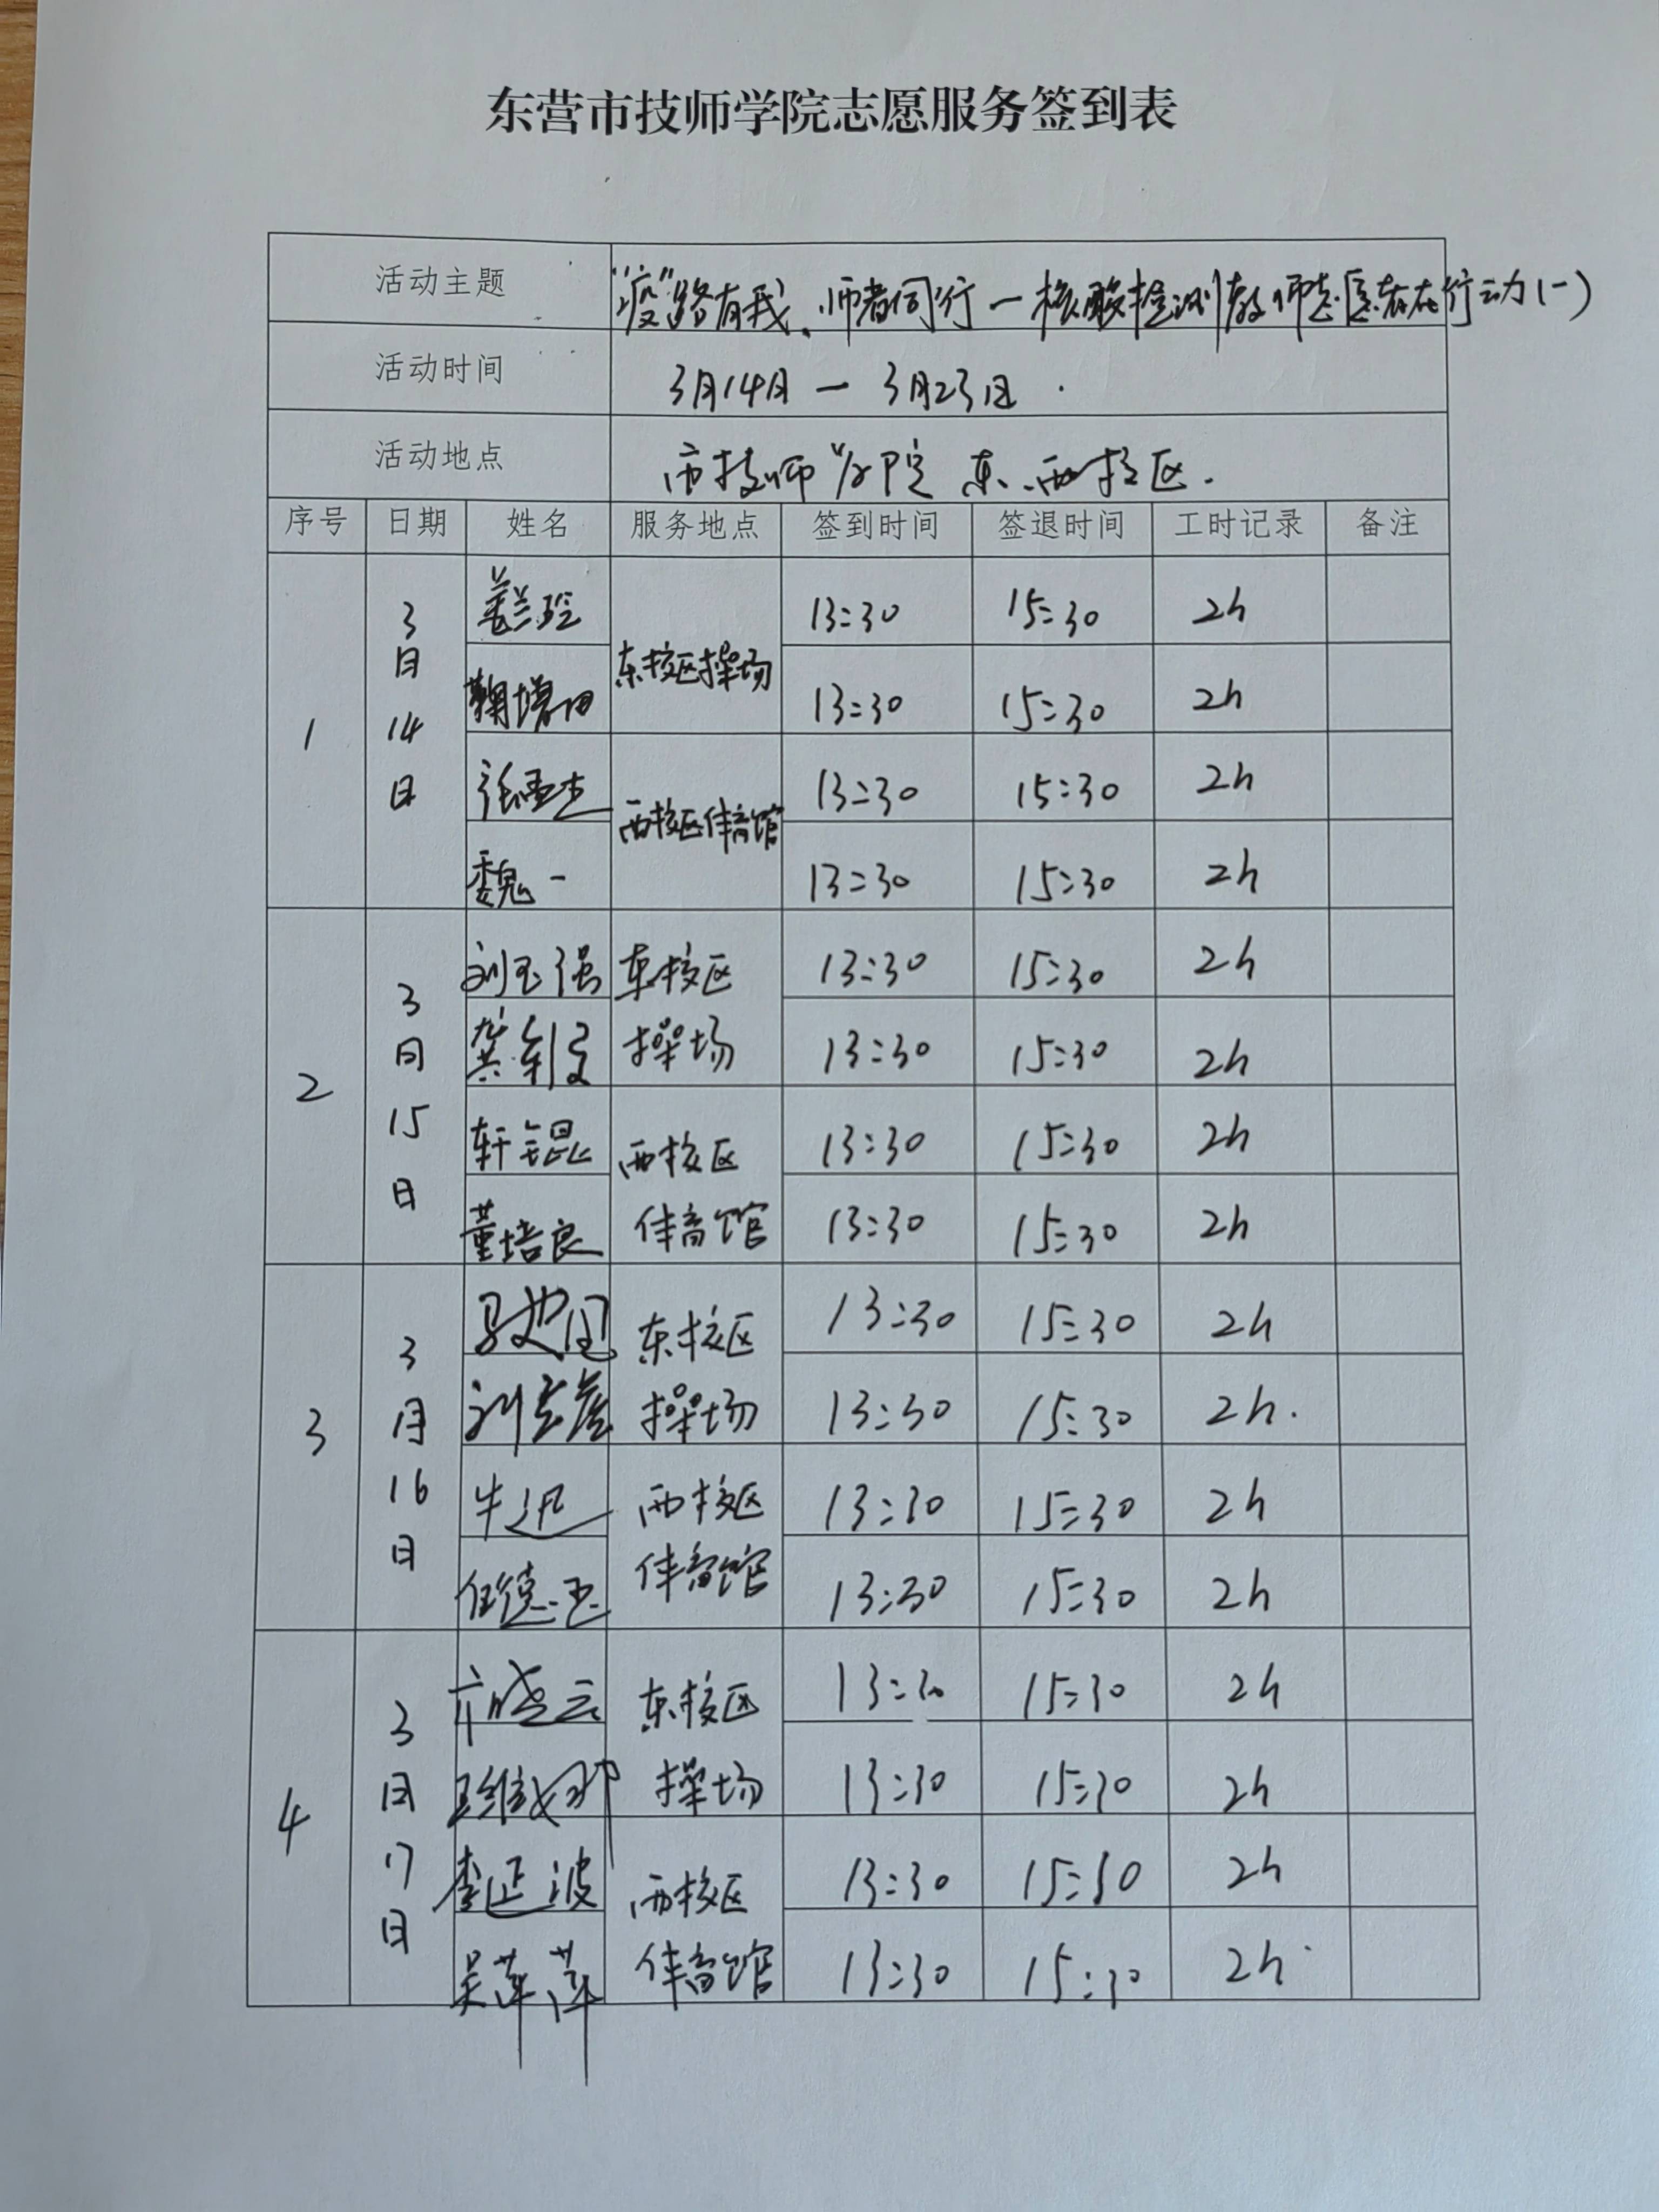 东营市技师学院志愿服务签到表
活动主题 “疫”路有我、师者同行一核酸检测教师志愿者在行动(一)
活动时间 3月14日 — 3月23日
活动地点 市技师学院 东、西校区.
序号 日期 姓名 服务地点 签到时间 签退时间 工时记录 备注
1 3月14日 姜兰玲 东校区操场 13:30 15:30 2h
鞠增 13:30 15:30 2h
张孟杰 西校区体育馆 13:30 15:30 2h
魏一 13:30 15:30 2h
2 3月15日 刘玉强 东校区 13:30 15:30 2h
龚 操场 13:30 15:30 2h
轩锟 西校区 13:30 15:30 2h
董培良 体育馆 13:30 15:30 2h
3 3月16日 东校区 13:30 15:30 2h
刘 操场 13:30 15:30 2h.
牛迅 西校区 13:30 15:30 2h
任德玉 体育馆 13:30 15:30 2h
4 3月17日 亓晓云 东校区 13:30 15:30 2h
王维娜 操场 13:30 15:30 2h
李延波 西校区 13:30 15:30 2h
吴萍萍 体育馆 13:30 15:30 2h